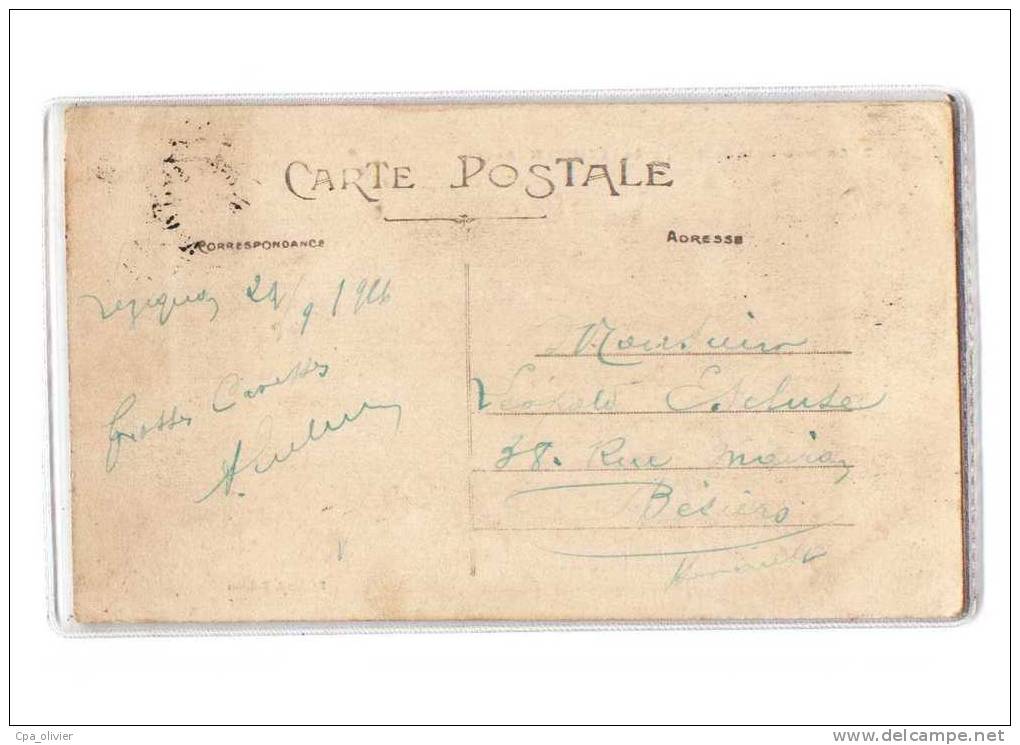 CARTE POSTALE
CORRESPONDANCE
ADRESSE
Lezignan 29/9/1916
Grosses Caresses
Monsieur
Léopold Escluse
38. Rue Mairan
Béziers
Cpa_olivier
www.delcampe.net